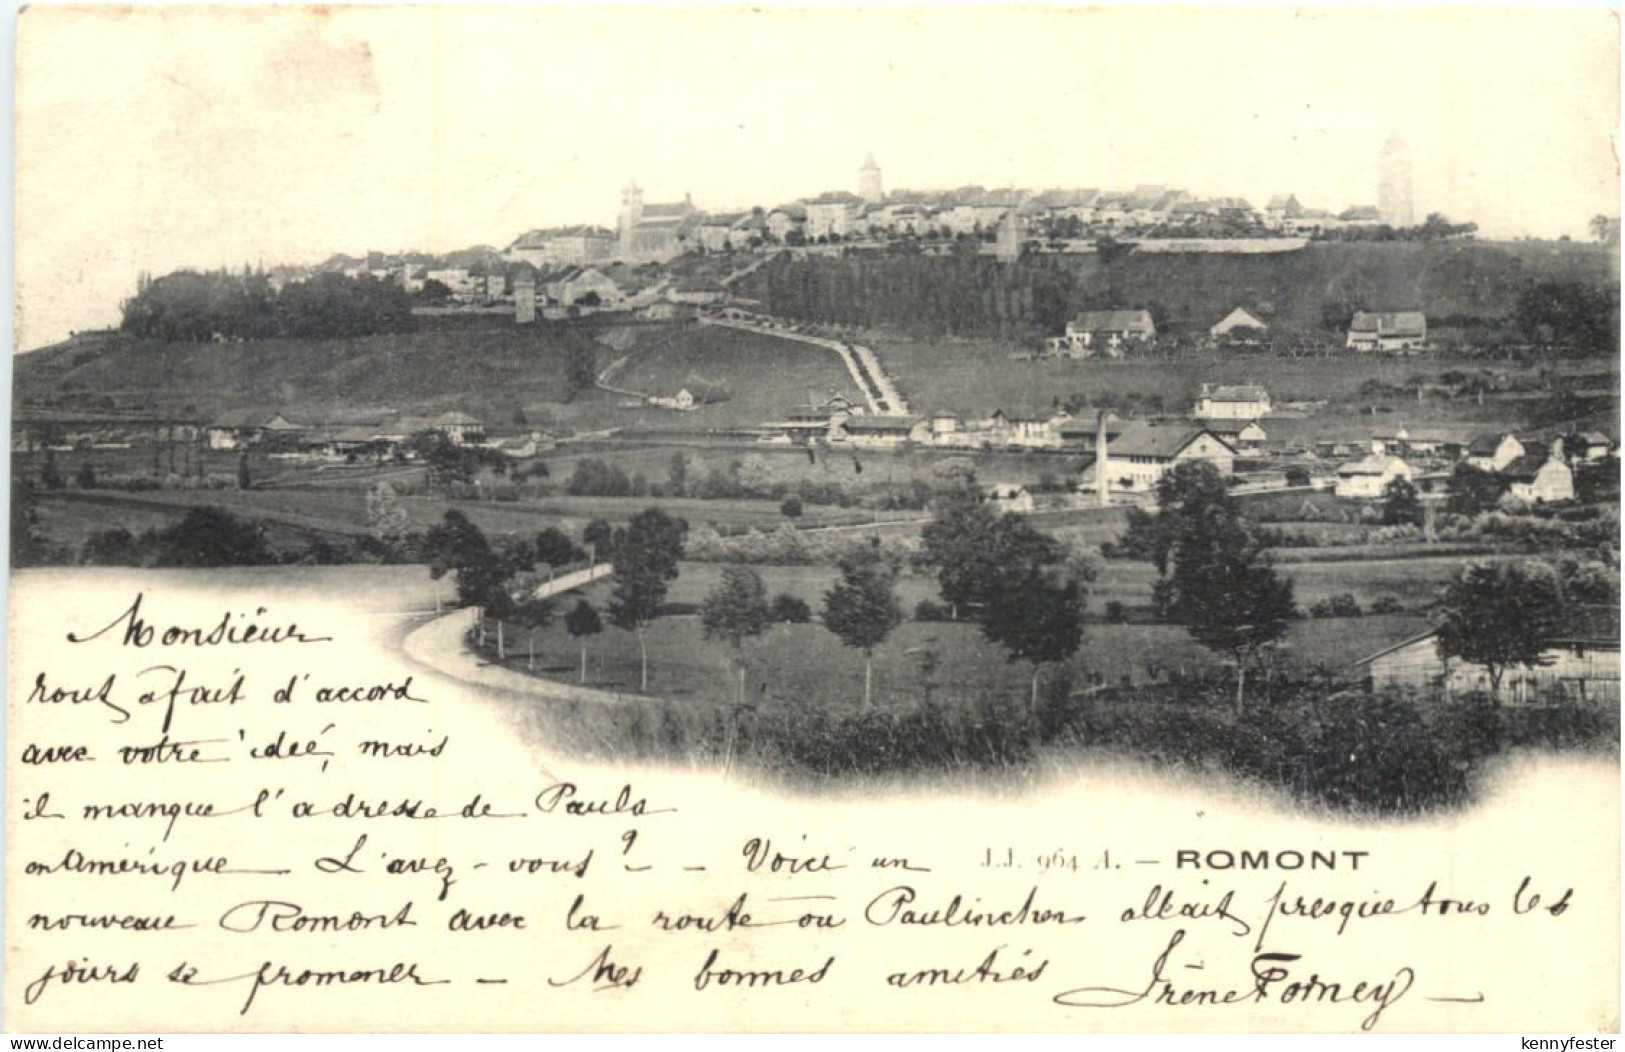 Monsieur
tout à fait d'accord
avec votre idée, mais
il manque l'adresse de Paula
en Amérique L'avez-vous? - Voici un
J.J. 964 A. — ROMONT
nouveau Romont avec la route où Paulinchen allait presque tous les
jours se promener - Mes bonnes amitiés Irène Forney -
www.delcampe.net
kennyfester